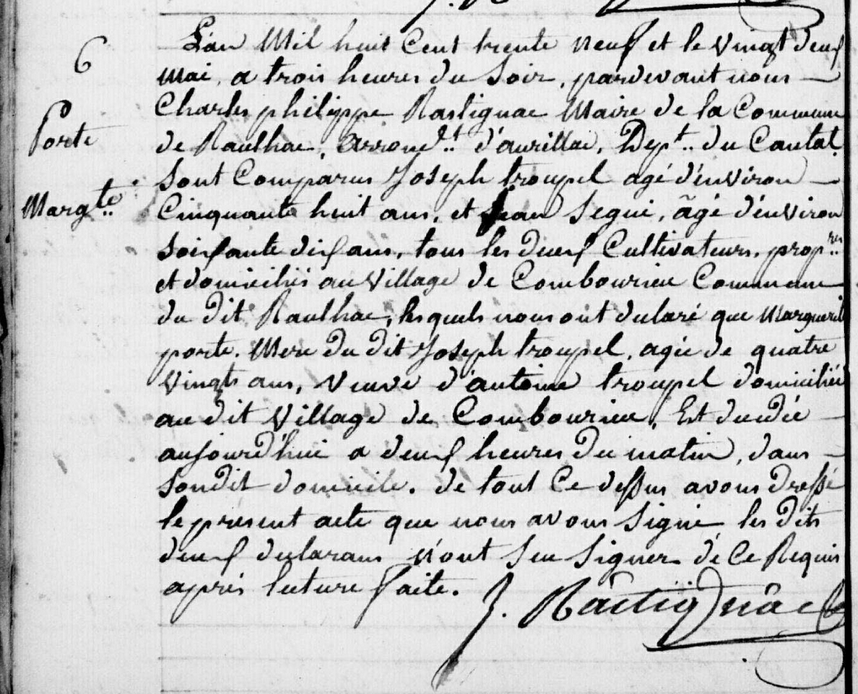 6
porte
Marg.te
L'an Mil huit Cent trente neuf et le vingt deux
Mai, a trois heures du Soir, pardevant nous
Charles philippe Rastignac Maire de la Commune
de Raulhac, arrond.t d'aurillac, Dep.t du Cantal
Sont Comparus Joseph troupel agé d'environ
Cinquante huit ans, et Jean Segui, âgé d'environ
soixante dix ans, tous les deux Cultivateurs, prop.res
et domiciliés au village de Combourieu Commune
du dit Raulhac, lesquels nous ont declaré que Marguerite
porte, Mere du dit Joseph troupel, agée de quatre
Vingts ans, Veuve d'antoine troupel domiciliée
au dit Village de Combourieu, Est decédée
aujourd'hui a deux heures du matin, dans
sondit domicile. de tout Ce dessus avons dressé
le present acte que nous avons Signé les dits
deux declarans n'ont Seu Signer de Ce Requis
aprés lecture faite.
Rastignac